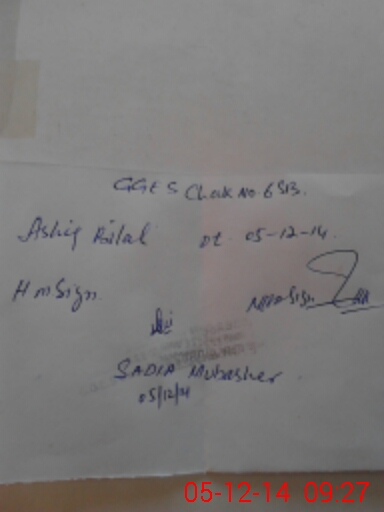 GGES Chak No. 6SB.
Ashiq Bilal Dt. 05-12-14.
H m Sign. Sign
SADIA Mubasher
05/12/14
05-12-14 09:27